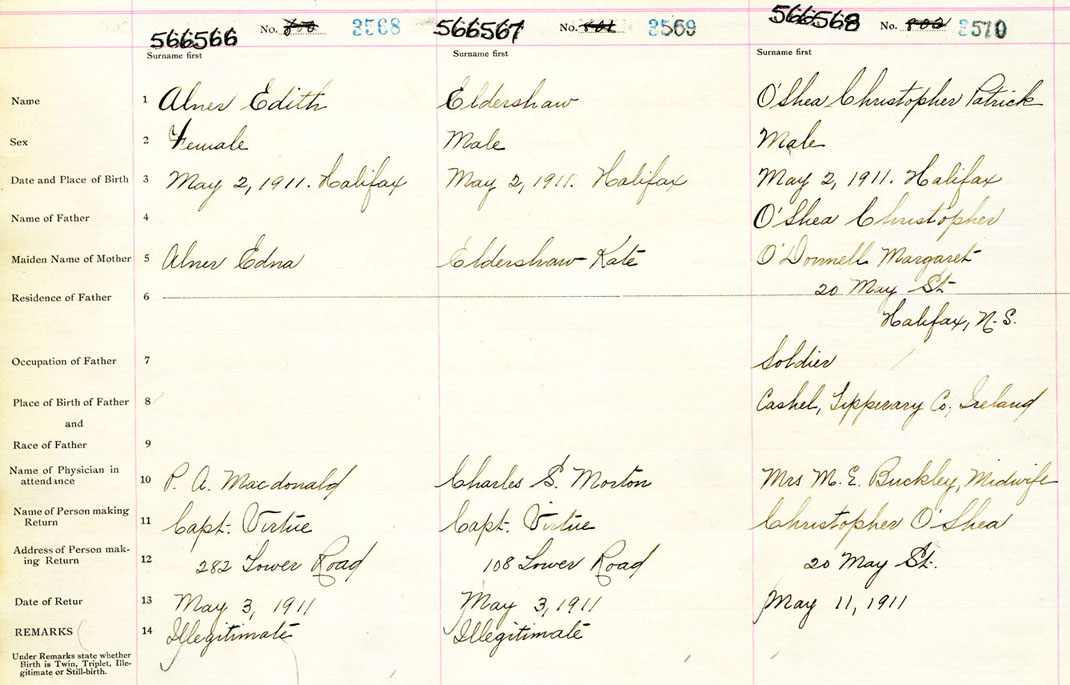 566566 No. 3568 566567 No. 3569 566568 No. 3570
Surname first Surname first Surname first
Name 1 Alner Edith Eldershaw O'Shea Christopher Patrick
Sex 2 Female Male Male
Date and Place of Birth 3 May 2, 1911. Halifax May 2, 1911. Halifax May 2, 1911. Halifax
Name of Father 4 O'Shea Christopher
Maiden Name of Mother 5 Alner Edna Eldershaw Kate O'Donnell Margaret
Residence of Father 6 20 May St.
Halifax, N.S.
Occupation of Father 7 Soldier
Place of Birth of Father 8 Cashel, Tipperary Co, Ireland
and
Race of Father 9
Name of Physician in
attendance 10 P. A. Macdonald Charles S. Morton Mrs M. E. Buckley, Midwife
Name of Person making
Return 11 Capt. Virtue Capt. Virtue Christopher O'Shea
Address of Person mak-
ing Return 12 282 Lower Road 108 Lower Road 20 May St.
Date of Retur 13 May 3, 1911 May 3, 1911 May 11, 1911
REMARKS 14 Illegitimate Illegitimate
Under Remarks state whether
Birth is Twin, Triplet, Ille-
gitimate or Still-birth.